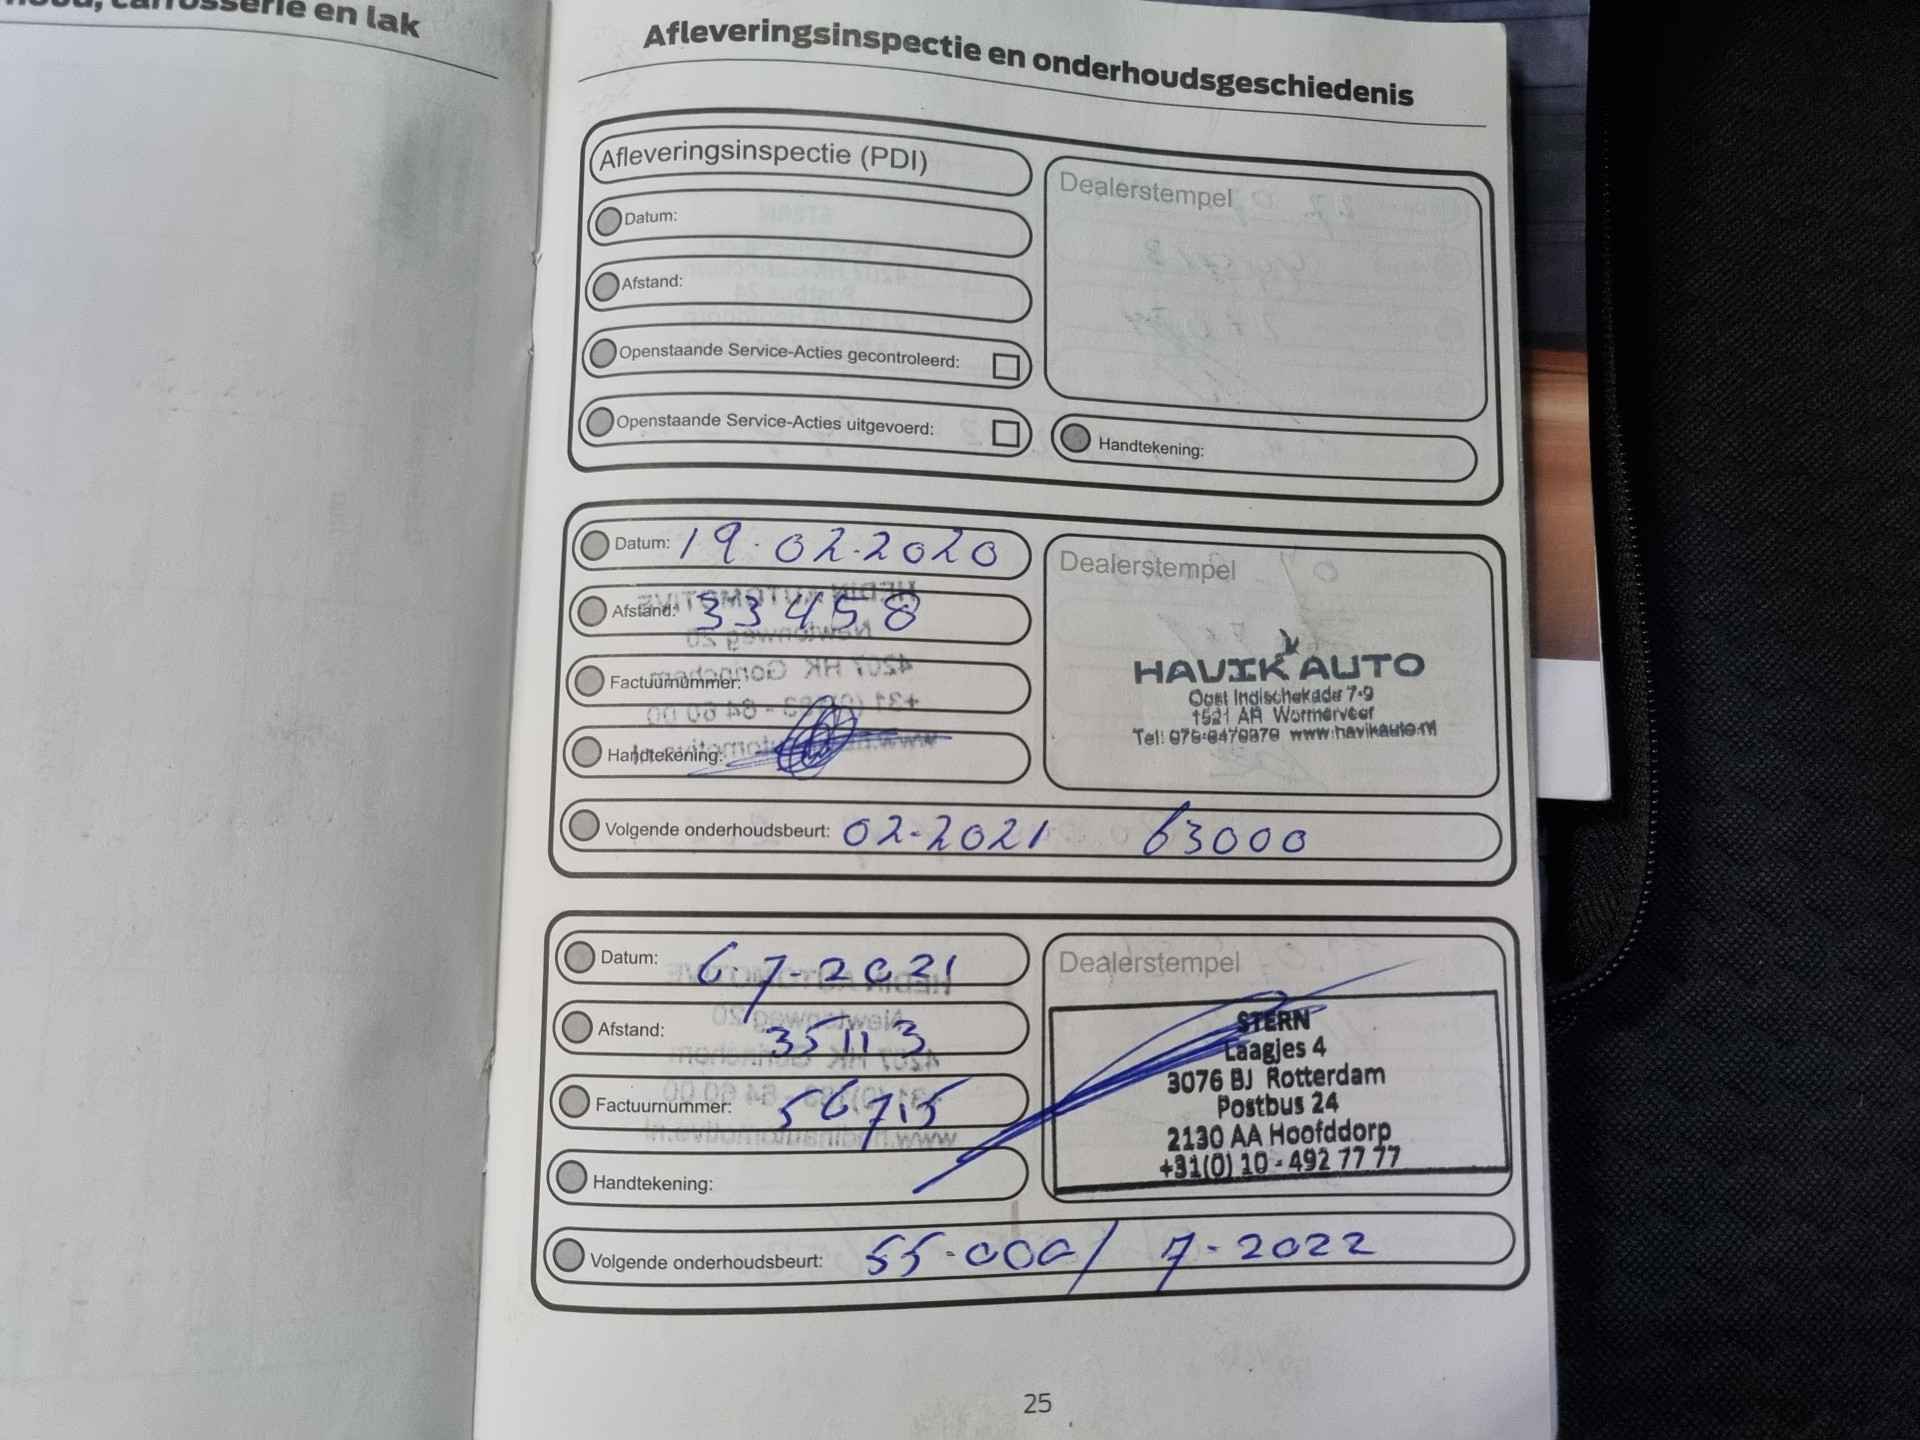 carrosserie en lak
Afleveringsinspectie en onderhoudsgeschiedenis
Afleveringsinspectie (PDI)
Datum:
Afstand:
Openstaande Service-Acties gecontroleerd:
Openstaande Service-Acties uitgevoerd:
Dealerstempel
Handtekening:
Datum: 19-02-2020
Afstand: 33458
Factuurnummer:
Handtekening:
Dealerstempel
HAVIK AUTO
Oost Indischekade 7-9
1521 AA Wormerveer
Tel: 075-6470379 www.havikauto.nl
Volgende onderhoudsbeurt: 02-2021 63000
Datum: 6-7-2021
Afstand: 35113
Factuurnummer: 56715
Handtekening:
Dealerstempel
STERN
Laagjes 4
3076 BJ Rotterdam
Postbus 24
2130 AA Hoofddorp
+31(0) 10 - 492 77 77
Volgende onderhoudsbeurt: 55-000/ 7-2022
25